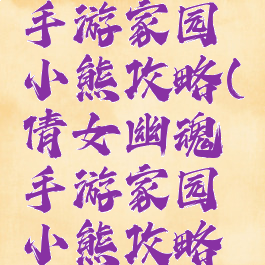 手游家园
小熊攻略(
倩女幽魂
手游家园
小熊攻略